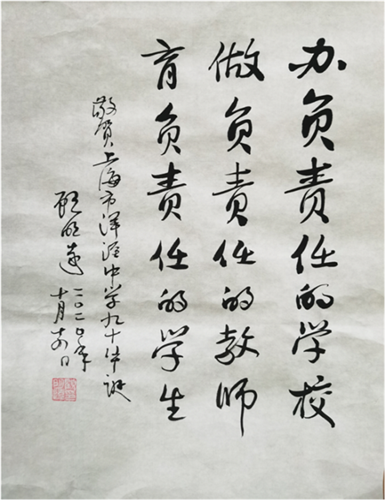 办负责任的学校
做负责任的教师
育负责任的学生
敬贺上海市洋泾中学九十华诞
顾明远
二〇二〇年
十月十日